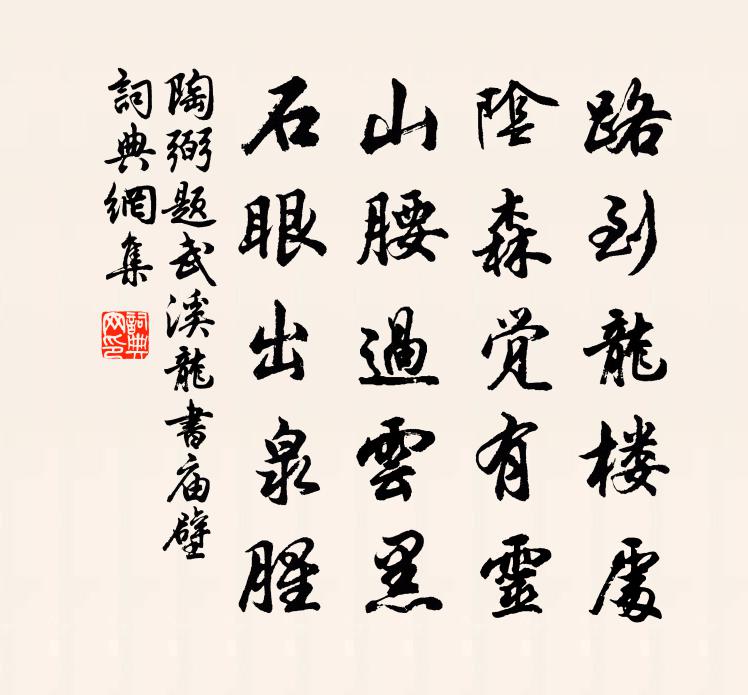 路到龍楼處
陰森覚有靈
山腰過雲黑
石眼出泉腥
陶弼题武溪龍書庙壁
詞典網集
詞典網印